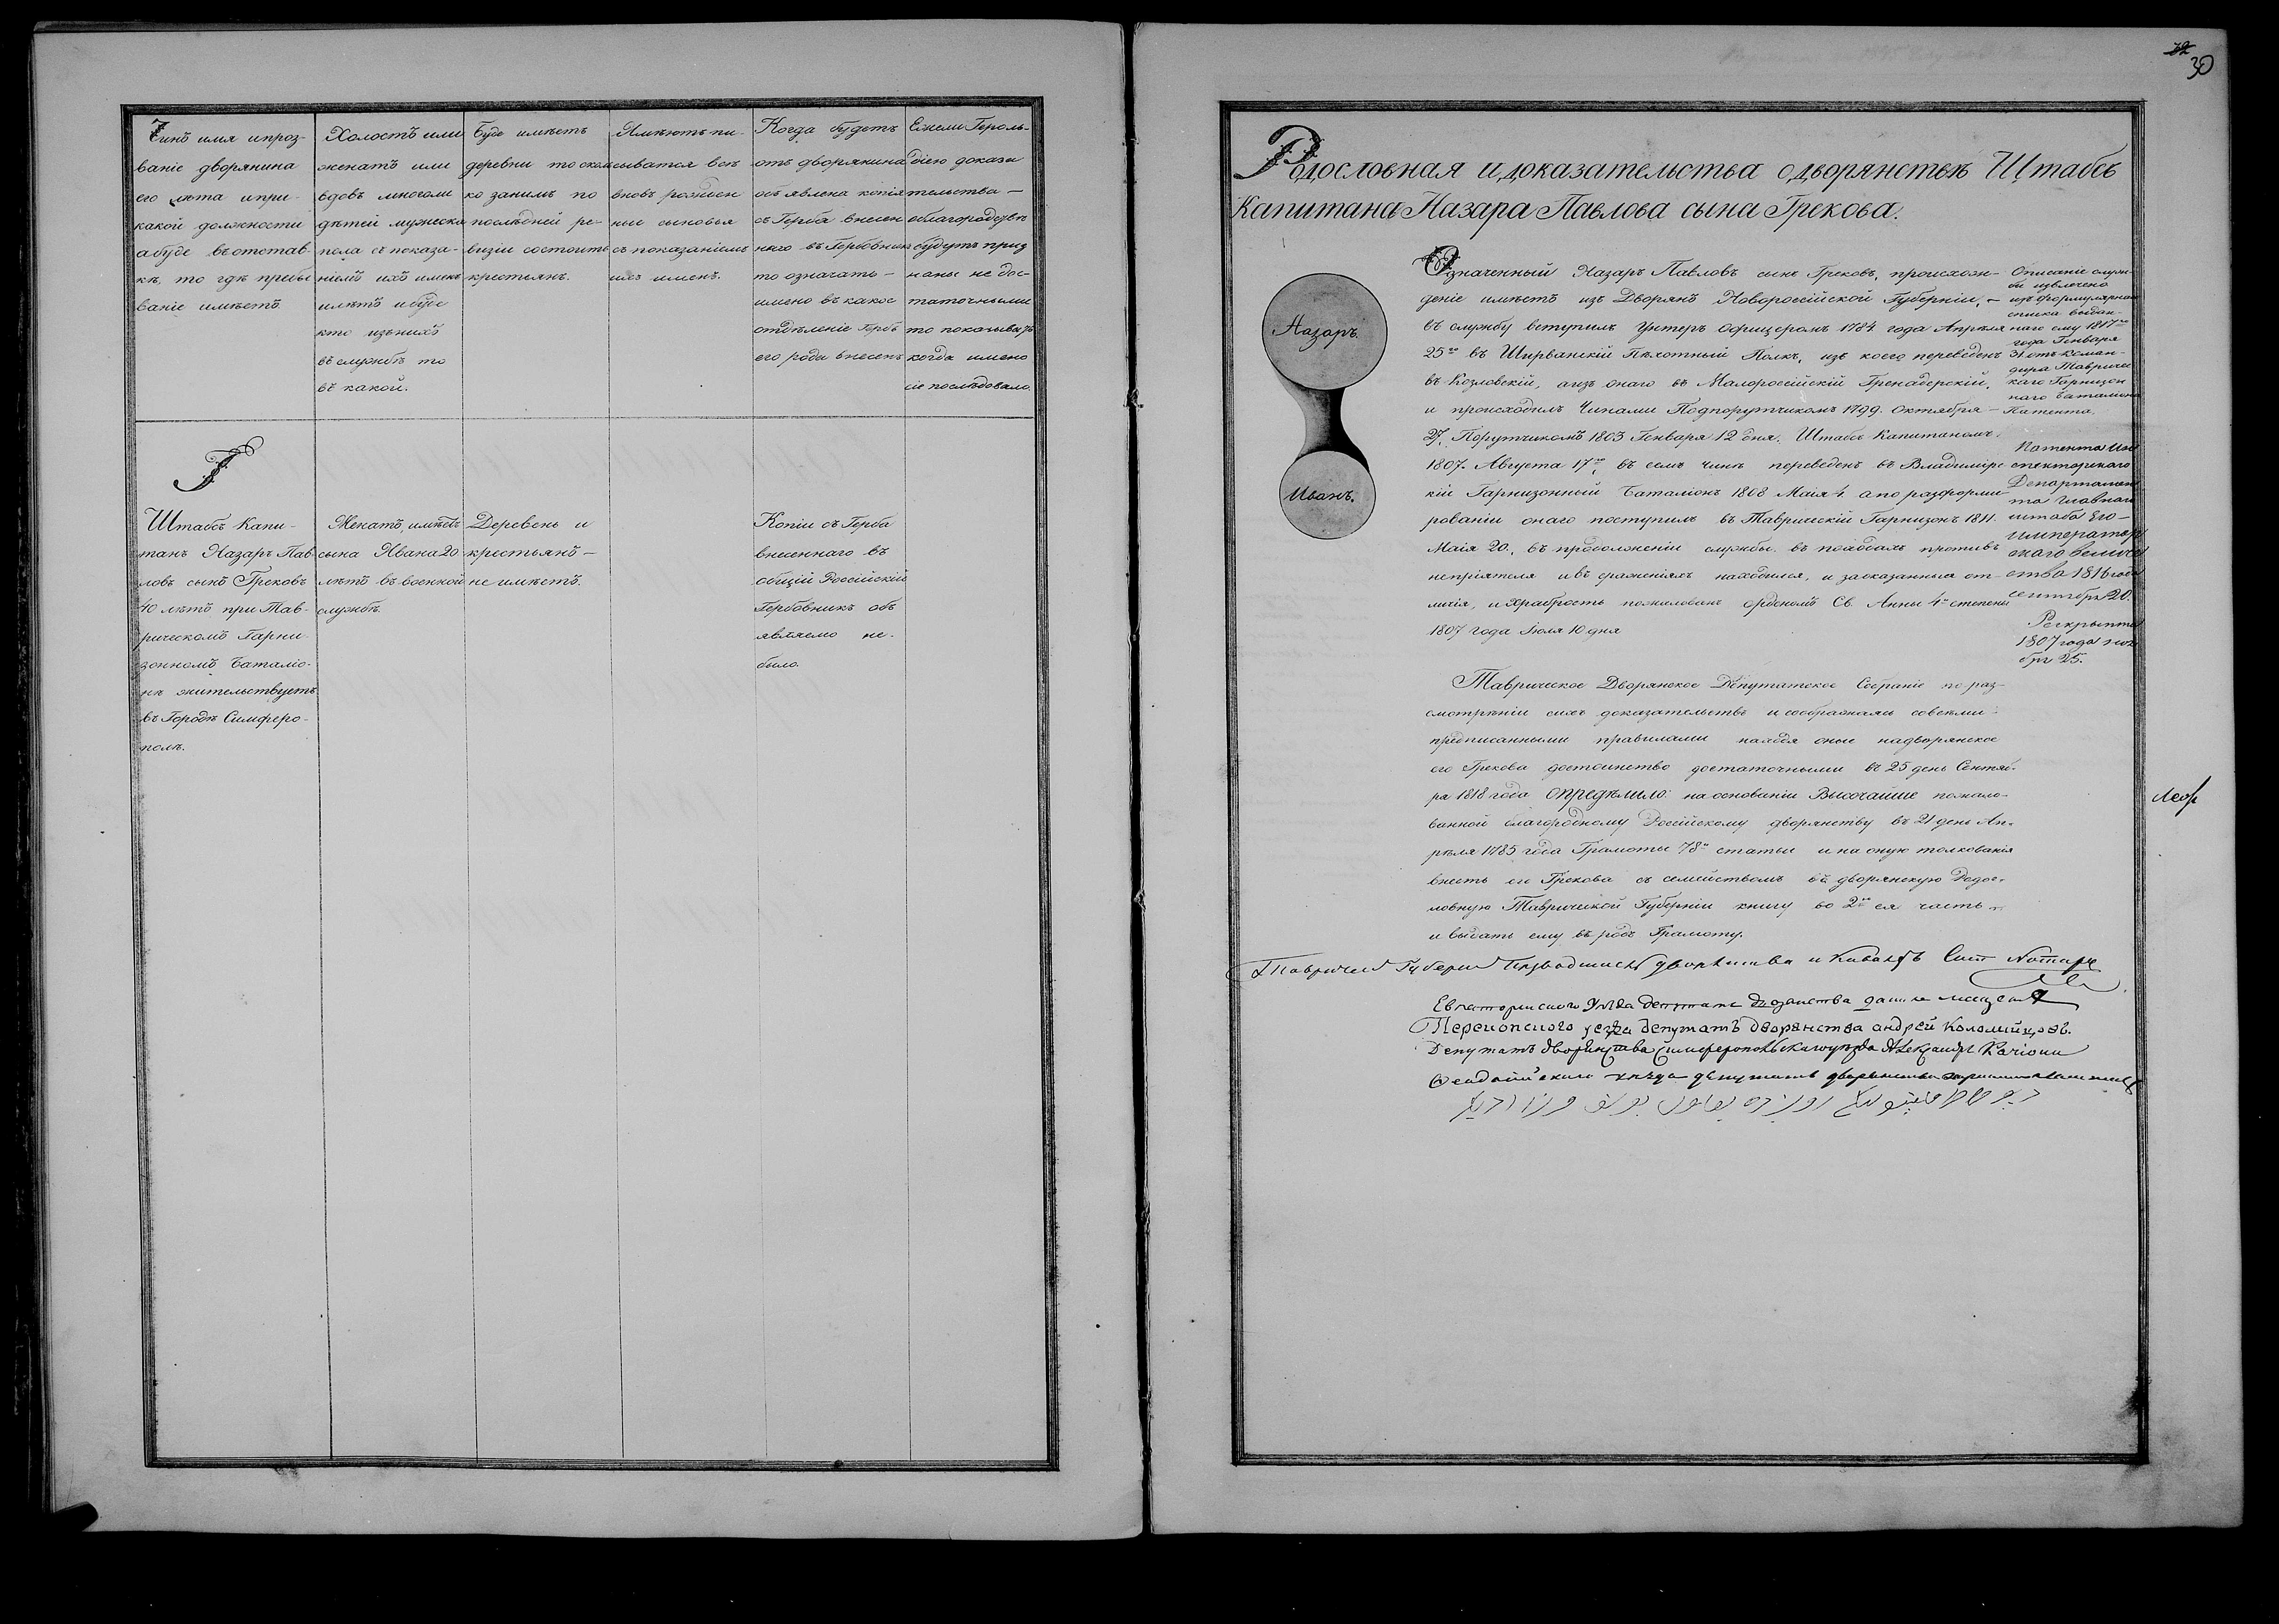 Чинъ имя ипроз-
ваніе дворянина
его лѣта ипри-
какой должности
абуде въотстав-
кѣ, то гдѣ пребы
ваніе имѣетъ
Холостъ или
женатъ или
вдовъ многоли
дѣтей мужеска
пола съ показа-
ніемъ ихъ именъ
лѣтъ ибуде
кто изънихъ
въ службѣ то
въ какой.
Буде имѣетъ
деревни то сколь
ко занимъ по
послѣдней ре-
визіи состоитъ
крестьянъ.
сываются всѣ
вновь рожден
ные сыновья
съ показаніемъ
ихъ именъ.
Когда будетъ
отъ дворянина
объявлена копія
съ Герба внесен
наго въ Гербовникъ
то означать-
имено въ какое
отдѣленіе Гербъ
его рода внесенъ
Ежели Героль-
діею доказа
тельства-
облагородствѣ
будутъ приз
наны не дос-
таточными
то показывать
когда имено
сіе послѣдовало
Г
Штабсъ Капи-
танъ Назаръ Пав
ловъ сынъ Грековъ
40 лѣтъ при Тав-
рическомъ Гарни
зонномъ Баталіо-
нѣ жительствуетъ
въ Городѣ Симферо-
полѣ.
Женатъ, имѣетъ
сына Ивана 20
лѣтъ въ военной
службѣ.
Деревень и
крестьянъ-
не имѣетъ.
Копіи съ Герба
внесеннаго въ
общій Россійскій
Гербовникъ объ
являемо не-
было.
30
Родословная и доказательства о дворянствѣ Штабсъ
Капитана Назара Павлова сына Грекова.
Назаръ.
Иванъ.
Означенный Назаръ Павловъ сынъ Грековъ, происхож-
деніе имѣетъ изъ Дворянъ Новороссійской Губерніи,-
въ службу вступилъ Унтеръ Офицеромъ 1784 года Апрѣля
25го въ Ширванскій Пѣхотный Полкъ, изъ коего переведенъ
въ Козловскій, аизъ онаго въ Малороссійскій Гренадерскій,
и происходилъ Чинами Подпорутчикомъ 1799. Октября-
27, Порутчикомъ 1803 Генваря 12 дня, Штабсъ Капитаномъ
1807. Августа 17го, въ семъ чинѣ переведенъ въ Владимірс
кій Гарнизонный Баталіонъ 1808 Маія 4 апо разформи-
рованіи онаго поступилъ въ Таврическій Гарнизонъ 1811.
Маія 20, въ продолженіи службы въ походахъ противъ
непріятеля ивъ сраженіяхъ находился, и заоказанныя от-
личія, и храбрость пожалованъ орденомъ Св. Анны 4й степени
1807 года Іюля 10 дня
Описаніе служ-
бы извлечено
изъ формулярнаго
списка выдан-
наго ему 1817го
года Генваря
31 отъ Коман-
дира Тавричес
каго Гарнизон
наго Баталіона
Патента.
Патента Ин
спекторскаго
Департамен
та Главнаго
штаба Его-
Императорс
скаго Величес
ства 1816 года
сентября 20.
Рескрыпта
1807 года ноя
бря 25.
Таврическое Дворянское Депутатское Собраніе по раз-
смотрѣніи сихъ доказательствъ и соображаясь совсѣми-
предписанными правилами находя оные надворянское
его Грекова достоинство достаточными въ 25 день Сентяб-
ря 1818 года опредѣлило: на основаніи Высочайше пожало-
ванной благородному Россійскому дворянству въ 21 день Ап-
рѣля 1785 года Грамоты 78й статьи и на оную толкованія
внесть его Грекова съ семействомъ въ дворянскую Родос-
ловную Таврической Губерніи книгу во 2ю ея часть-
и выдать ему въ родъ Грамоту.
дворянства и Кавалеръ
Перекопского уезда депутатъ дворянства андрей Коломийцовъ.
Депутатъ дворянства Симферопольскаго уезда Александръ
депутатъ дворянства